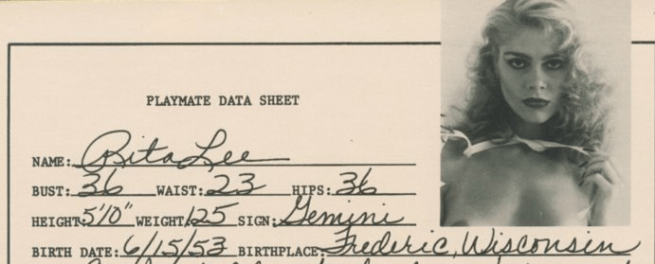 PLAYMATE DATA SHEET
NAME: Rita Lee
BUST: 36 WAIST: 23 HIPS: 36
HEIGHT: 5'10" WEIGHT 125 SIGN: Gemini
BIRTH DATE: 6/15/53 BIRTHPLACE: Frederic, Wisconsin